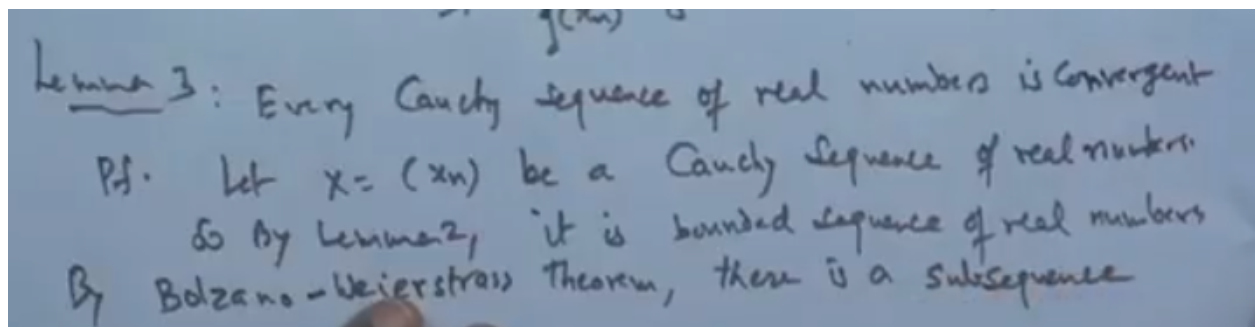 g(xn)
Lemma 3: Every Cauchy sequence of real numbers is Convergent
Pf. Let x = (xn) be a Cauchy Sequence of real numbers.
So By Lemma 2, it is bounded sequence of real numbers
By Bolzano-Weierstrass Theorem, there is a subsequence